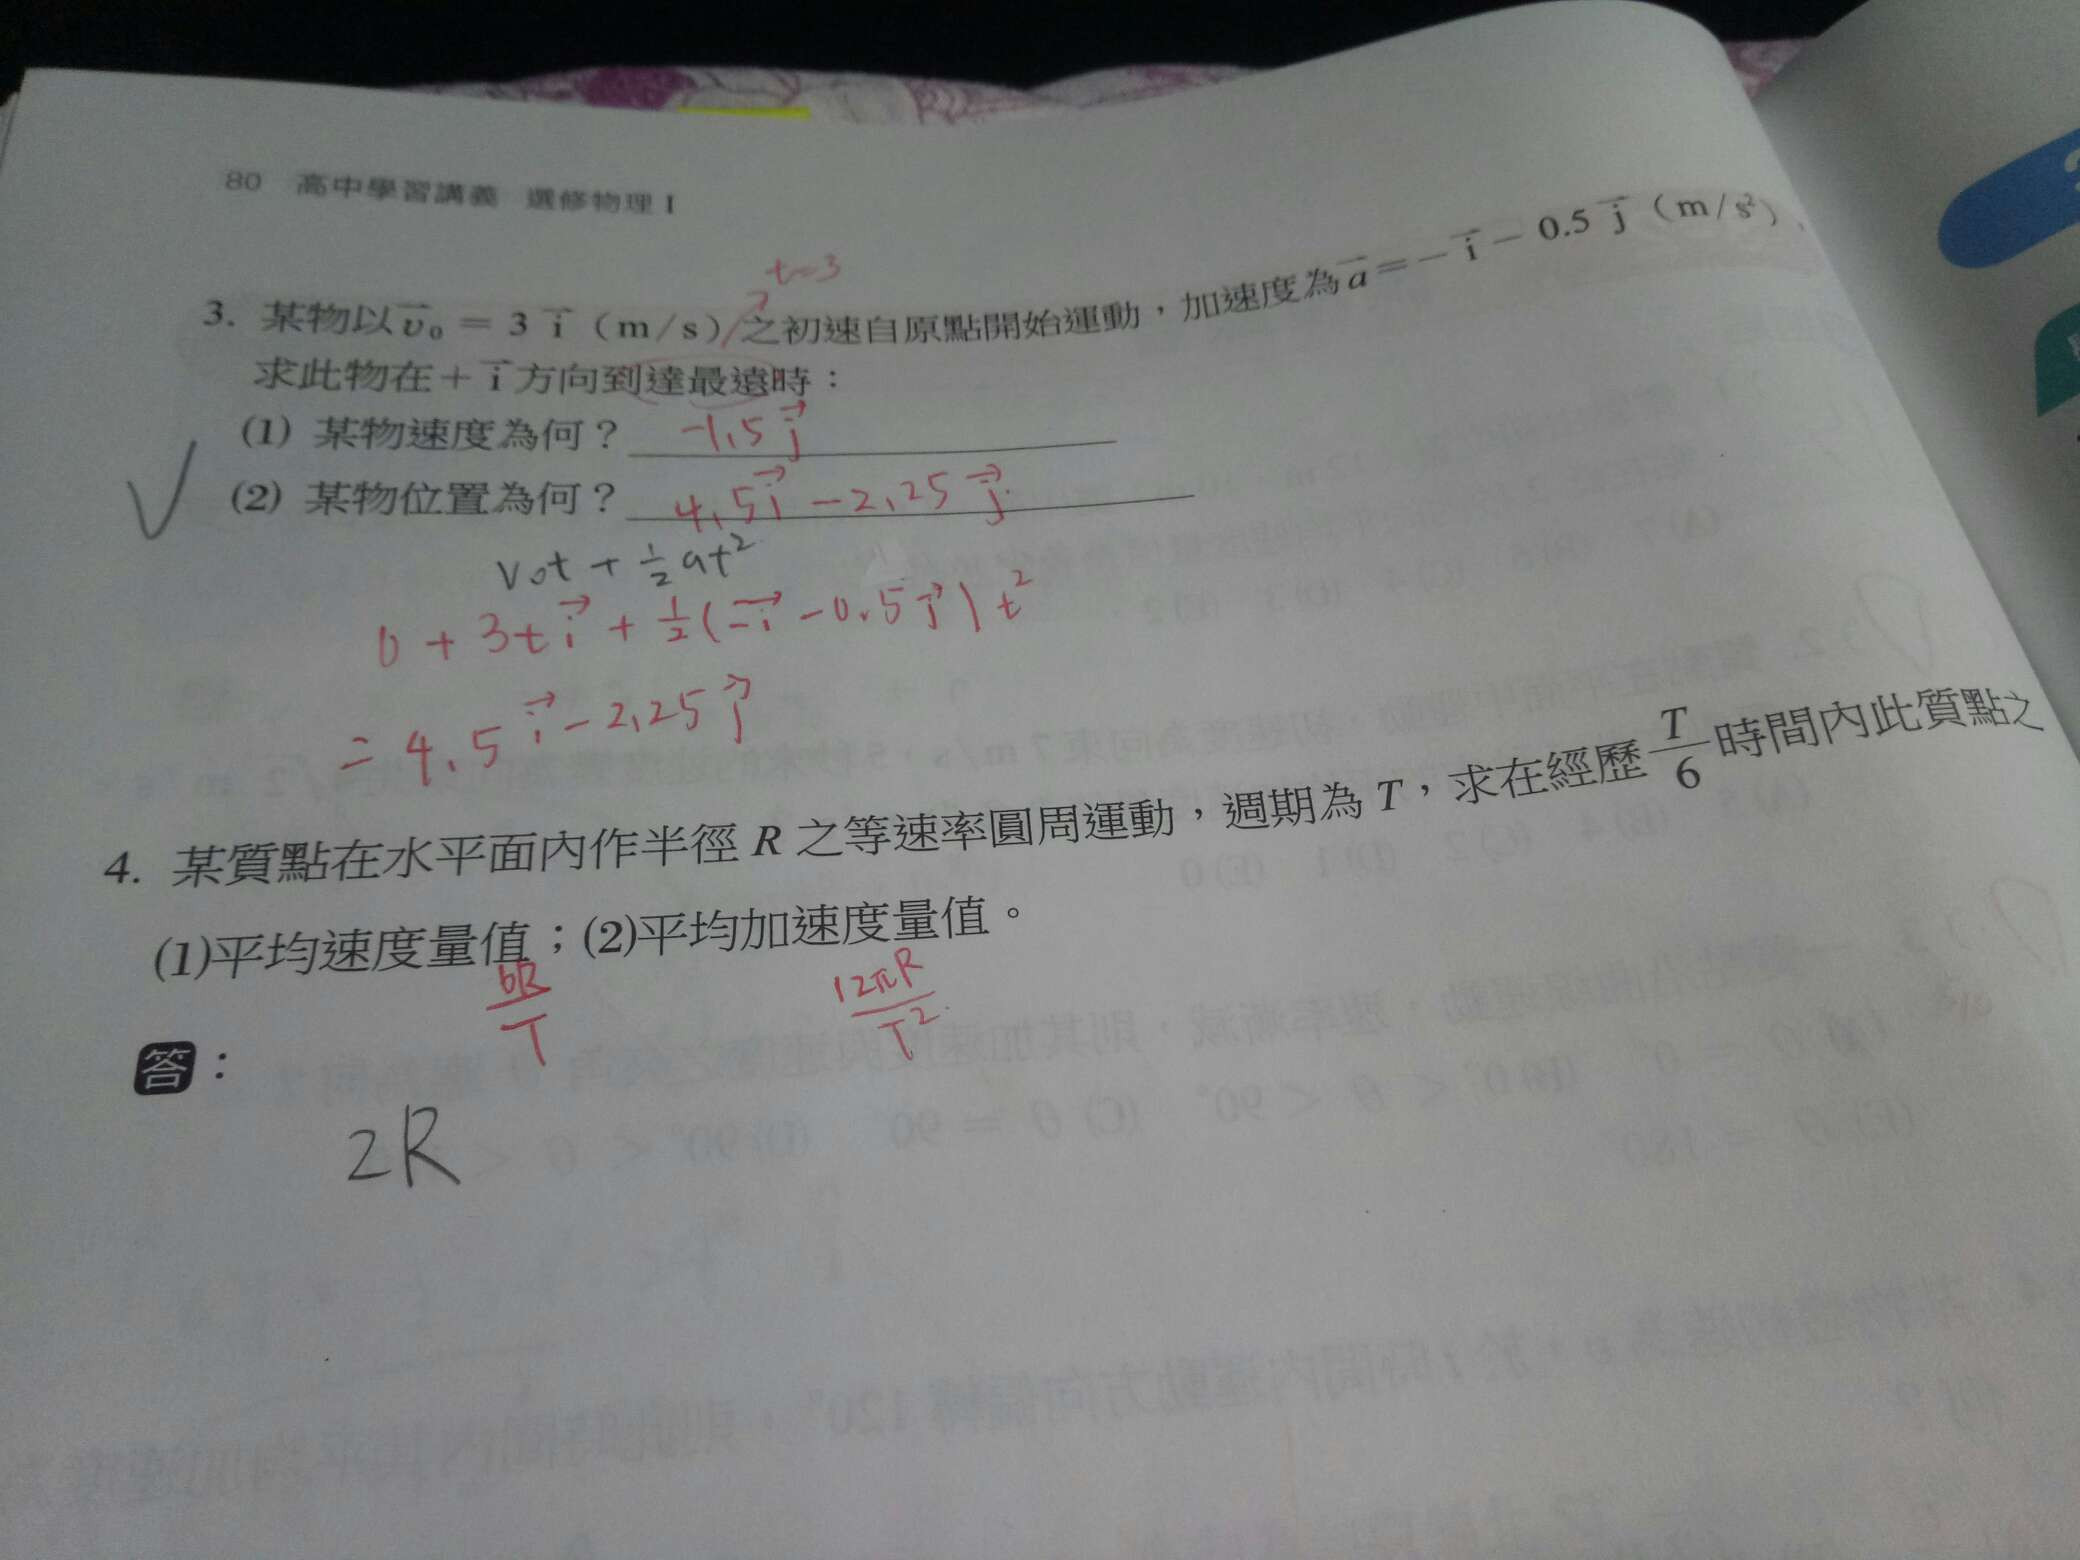 80 高中學習講義 選修物理 I
t=3
3. 某物以 v⃗₀ = 3 i⃗ (m/s) 之初速自原點開始運動,加速度為 a⃗ = − i⃗ − 0.5 j⃗ (m/s²),
求此物在+ i⃗ 方向到達最遠時:
(1) 某物速度為何? -1.5 j⃗
(2) 某物位置為何? 4.5 i⃗ - 2.25 j⃗
V₀t + ½at²
0 + 3t i⃗ + ½(-i⃗ - 0.5 j⃗) t²
= 4.5 i⃗ - 2.25 j⃗
4. 某質點在水平面內作半徑 R 之等速率圓周運動,週期為 T,求在經歷 T/6 時間內此質點之
(1)平均速度量值;(2)平均加速度量值。
6R/T 12πR/T²
答:
2R